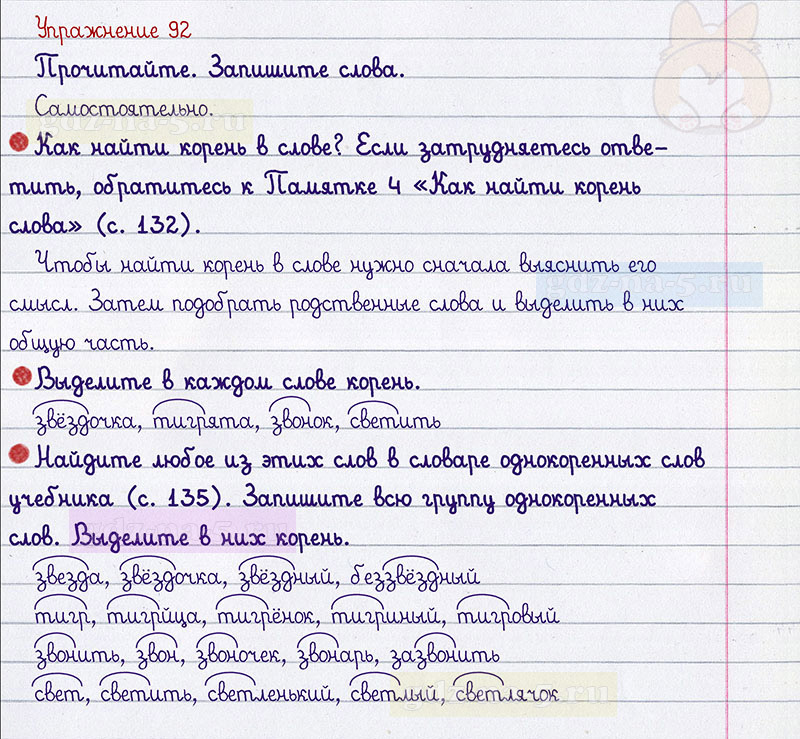 Упражнение 92
Прочитайте. Запишите слова.
Самостоятельно.
Как найти корень в слове? Если затрудняетесь отве-
тить, обратитесь к Памятке 4 «Как найти корень
слова» (с. 132).
Чтобы найти корень в слове нужно сначала выяснить его
смысл. Затем подобрать родственные слова и выделить в них
общую часть.
Выделите в каждом слове корень.
звёздочка, тигрята, звонок, светить
Найдите любое из этих слов в словаре однокоренных слов
учебника (с. 135). Запишите всю группу однокоренных
слов. Выделите в них корень.
звезда, звёздочка, звёздный, беззвёздный
тигр, тигрица, тигрёнок, тигриный, тигровый
звонить, звон, звоночек, звонарь, зазвонить
свет, светить, светленький, светлый, светлячок
gdz-na-5.ru
gdz-na-5.ru
gdz-na-5.ru
gdz-na-5.ru